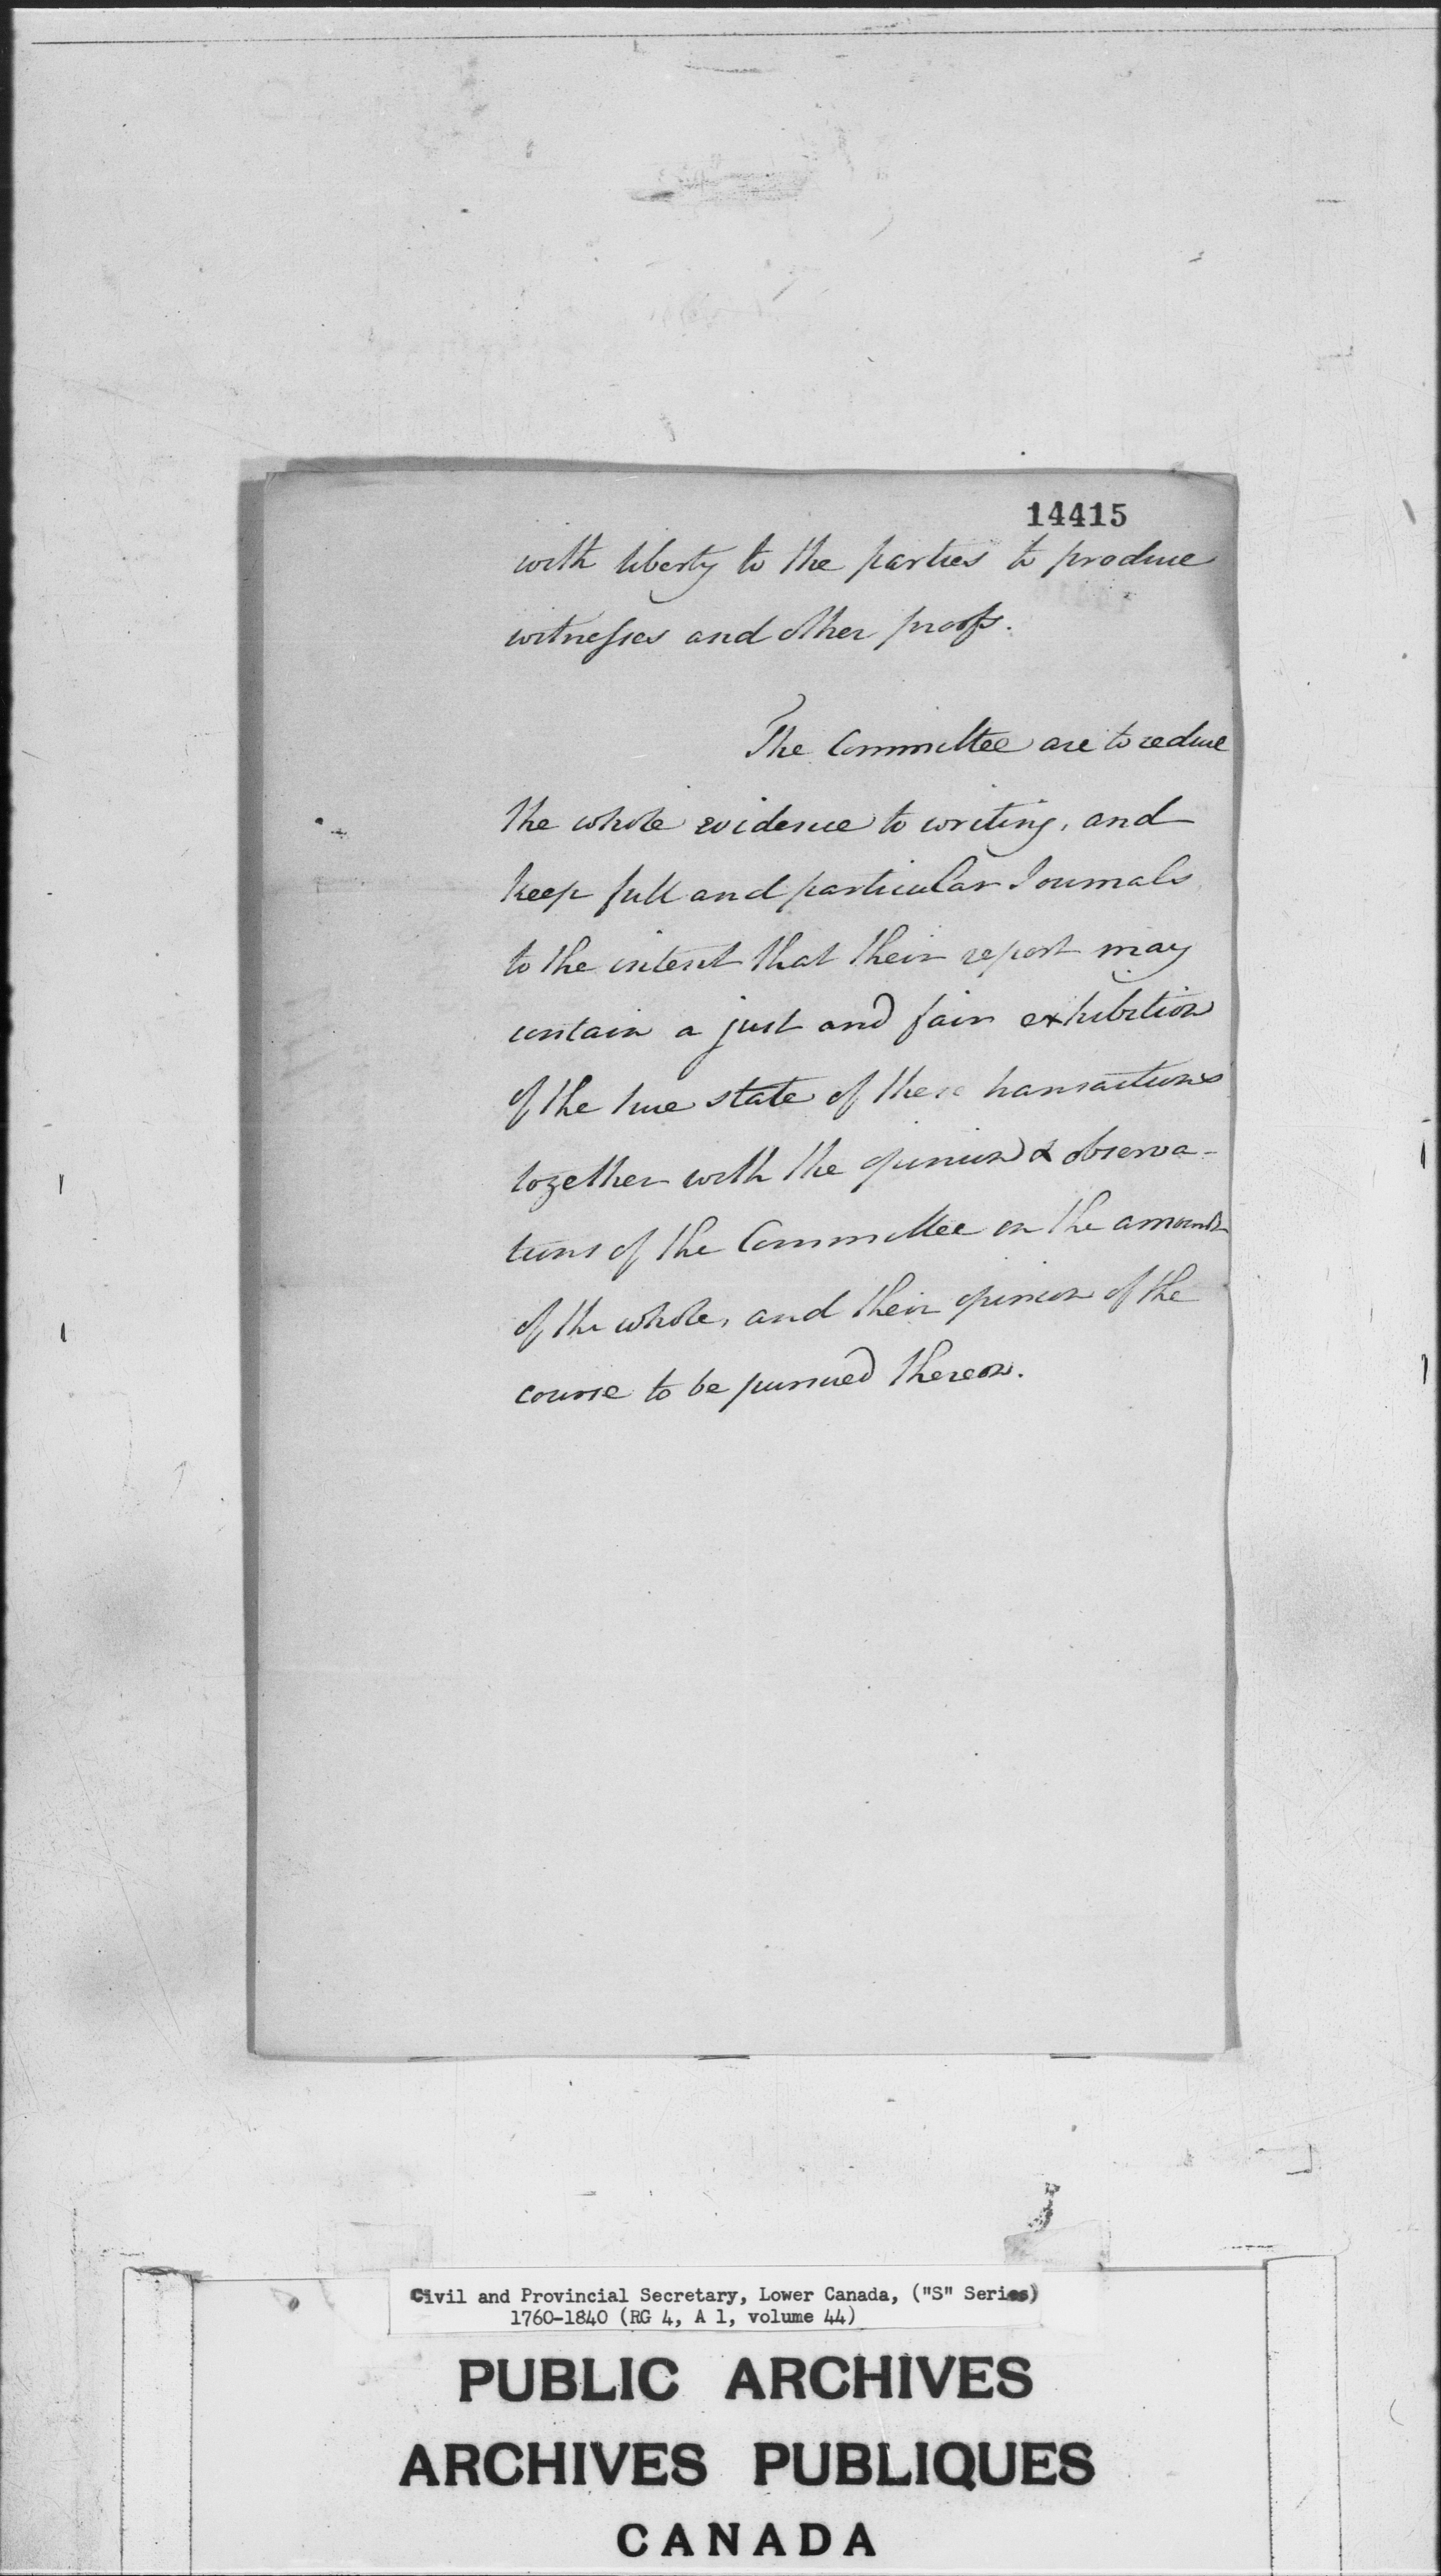 14415
with liberty to the parties to produce
witnesses and other proofs.
The Committee are to reduce
the whole evidence to writing, and
keep full and particular Journals
to the intent that their report may
contain a just and fair exhibition
of the true state of these transactions
together with the opinion & observa-
tions of the Committee on the amount
of the whole, and their opinion of the
course to be pursued thereon.
Civil and Provincial Secretary, Lower Canada, ("S" Series)
1760-1840 (RG 4, A 1, volume 44)
PUBLIC ARCHIVES
ARCHIVES PUBLIQUES
CANADA